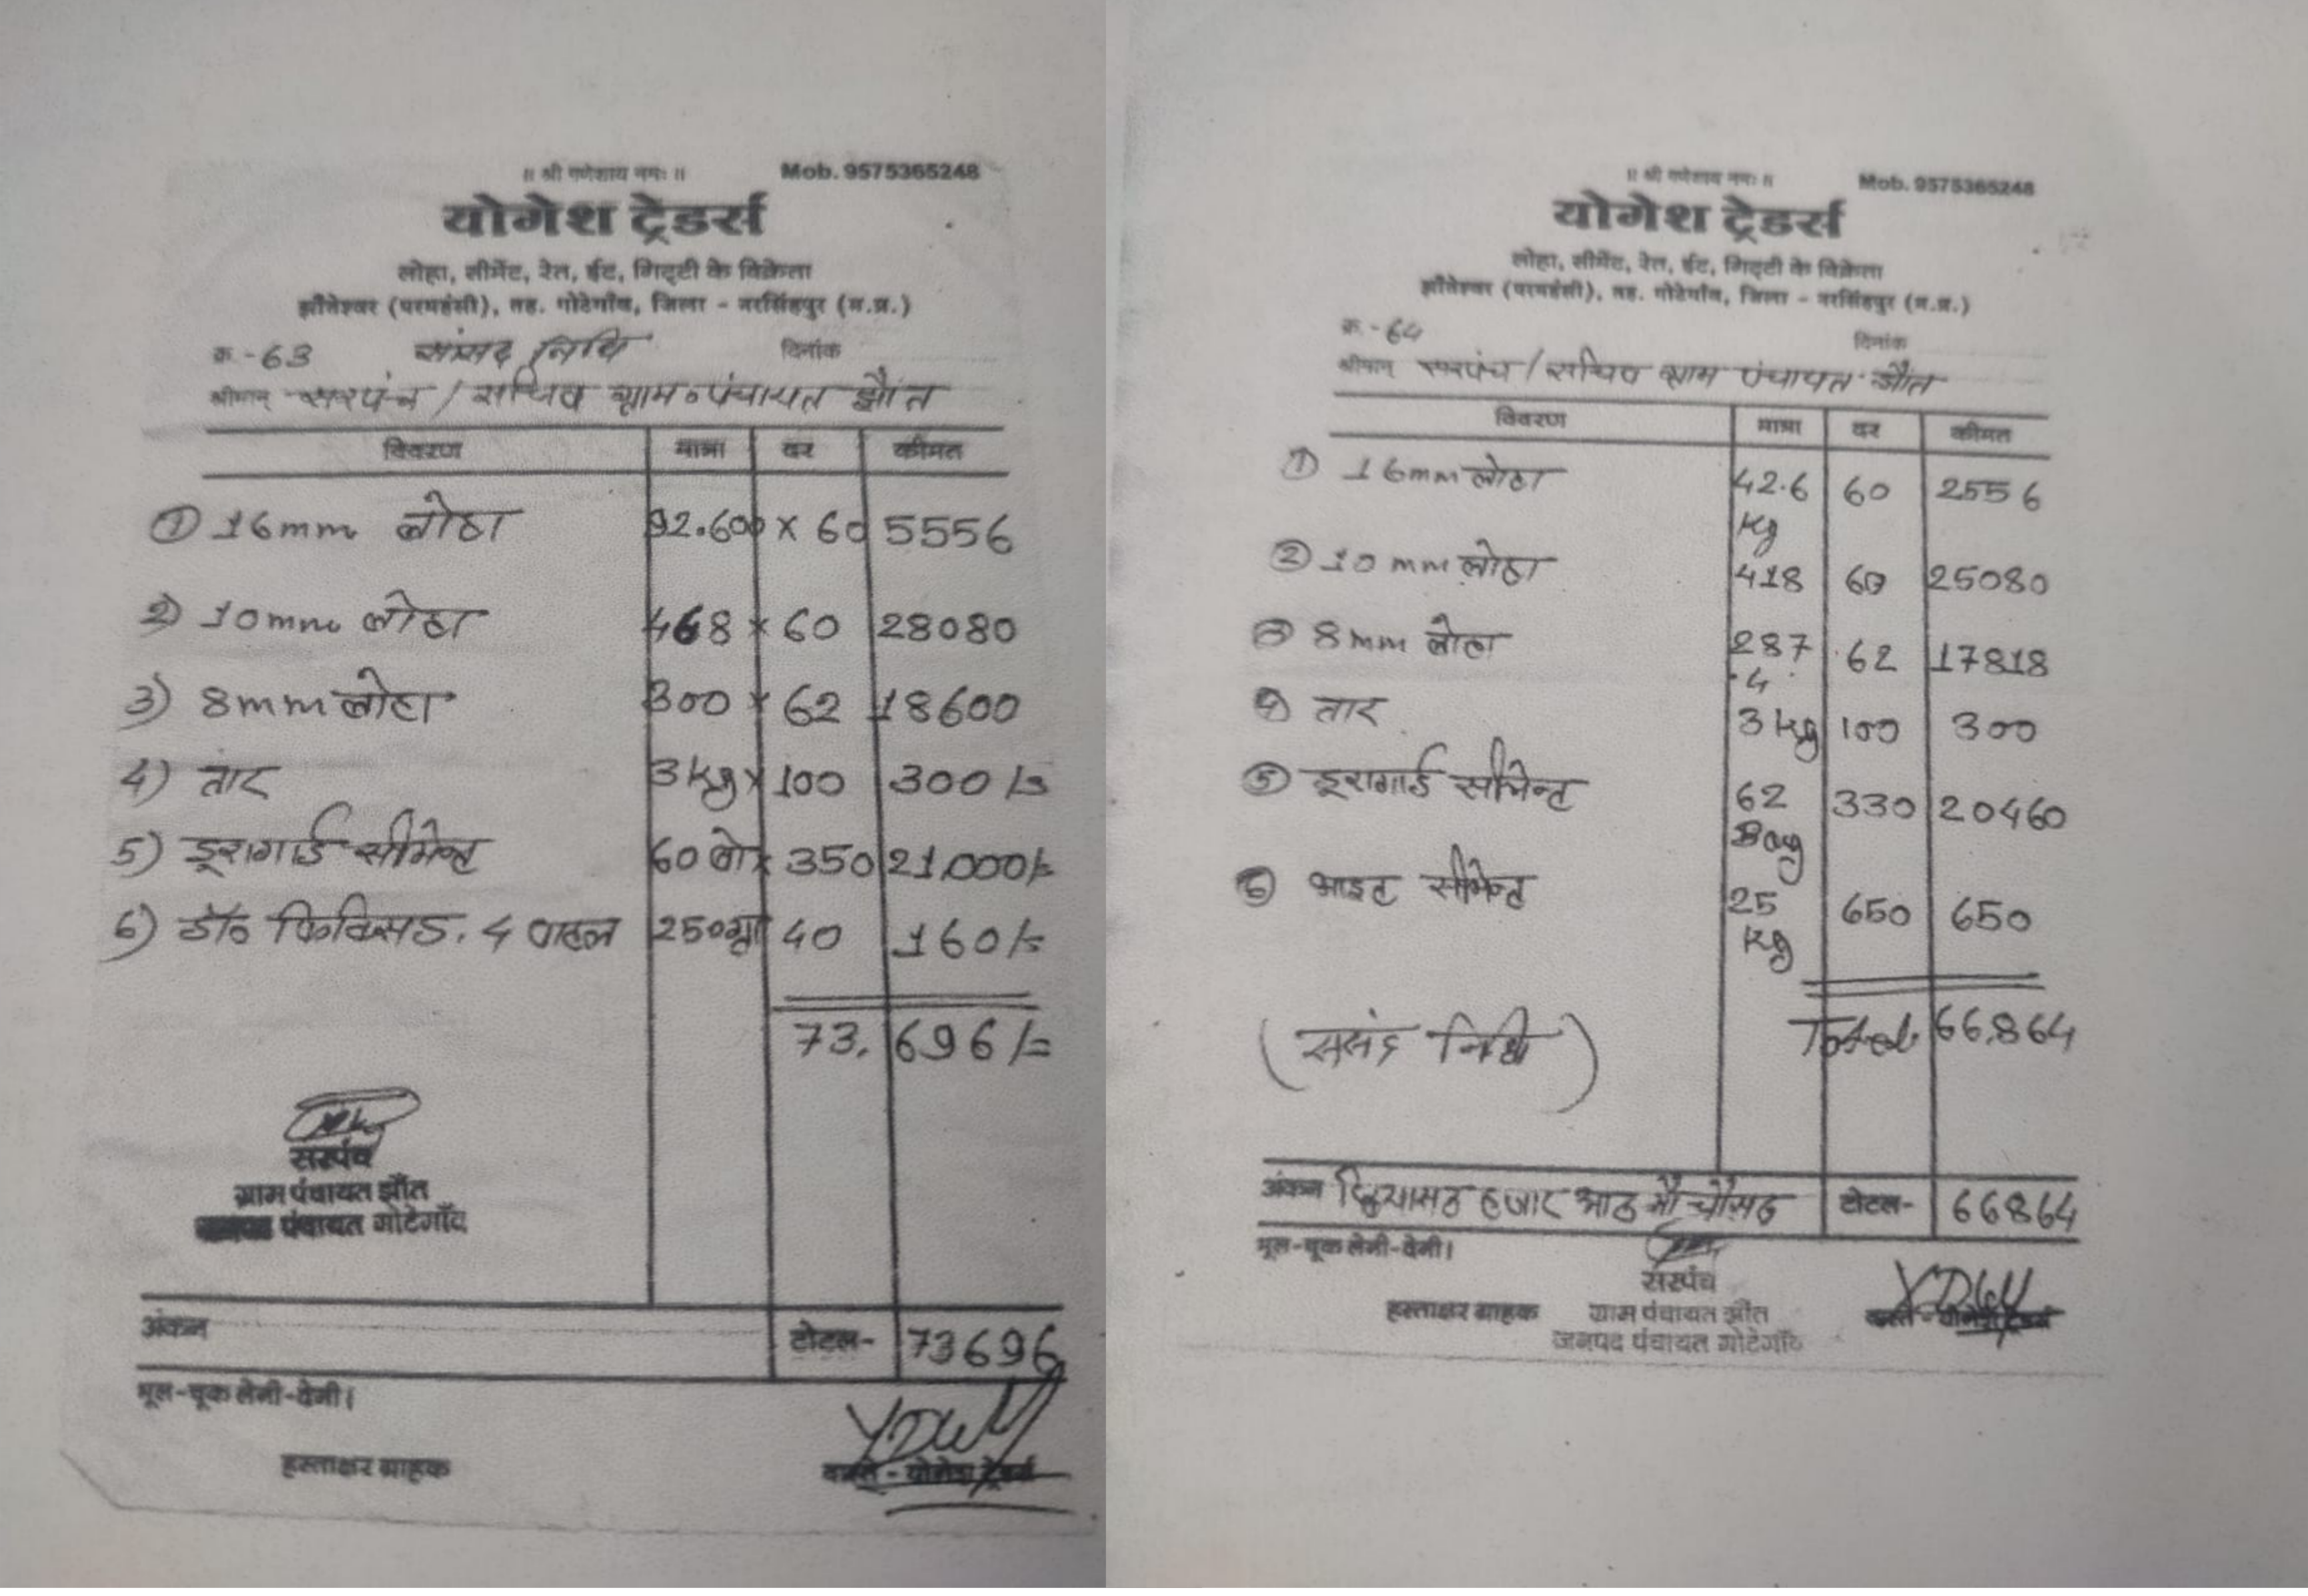 ॥ श्री गणेशाय नमः ॥ Mob. 9575365248
योगेश ट्रेडर्स
लोहा, सीमेंट, रेत, ईट, गिट्टी के विक्रेता
झौंतेश्वर (परमहंसी), तह. गोटेगाँव, जिला - नरसिंहपुर (म.प्र.)
क्र.-63 सांसद निधि दिनांक
श्रीमान् सरपंच / सचिव ग्राम पंचायत झौंत
विवरण मात्रा दर कीमत
① 16mm लोहा 92.600 x 60 5556
2) 10mm लोहा 468 x 60 28080
3) 8mm लोहा 300 x 62 18600
4) तार 3kg x 100 300/=
5) डूरागार्ड सीमेन्ट 60 बो x 350 21,000/=
6) डॉ० फिक्सिड. 4 250ग्रा 40 160/=
73,696/=
सरपंच
ग्राम पंचायत झौंत
जनपद पंचायत गोटेगाँव
अंकन टोटल- 73696
भूल-चूक लेनी-देनी।
हस्ताक्षर ग्राहक वास्ते - योगेश ट्रेडर्स
॥ श्री गणेशाय नमः ॥ Mob. 9575365248
योगेश ट्रेडर्स
लोहा, सीमेंट, रेत, ईट, गिट्टी के विक्रेता
झौंतेश्वर (परमहंसी), तह. गोटेगाँव, जिला - नरसिंहपुर (म.प्र.)
क्र.-64 दिनांक
श्रीमान् सरपंच / सचिव ग्राम पंचायत झौंत
विवरण मात्रा दर कीमत
① 16mm लोहा 42.6 kg 60 2556
② 10mm लोहा 418 60 25080
③ 8mm लोहा 287.4 62 17818
④ तार 3kg 100 300
⑤ डूरागार्ड सीमेन्ट 62 Bag 330 20460
⑥ भाइट सीमेन्ट 25 kg 650 650
(ससंद निधी) Total. 66,864
अंकन छियासठ हजार आठ सौ चौसठ टोटल- 66864
भूल-चूक लेनी-देनी।
सरपंच
हस्ताक्षर ग्राहक ग्राम पंचायत झौंत वास्ते - योगेश ट्रेडर्स
जनपद पंचायत गोटेगाँव